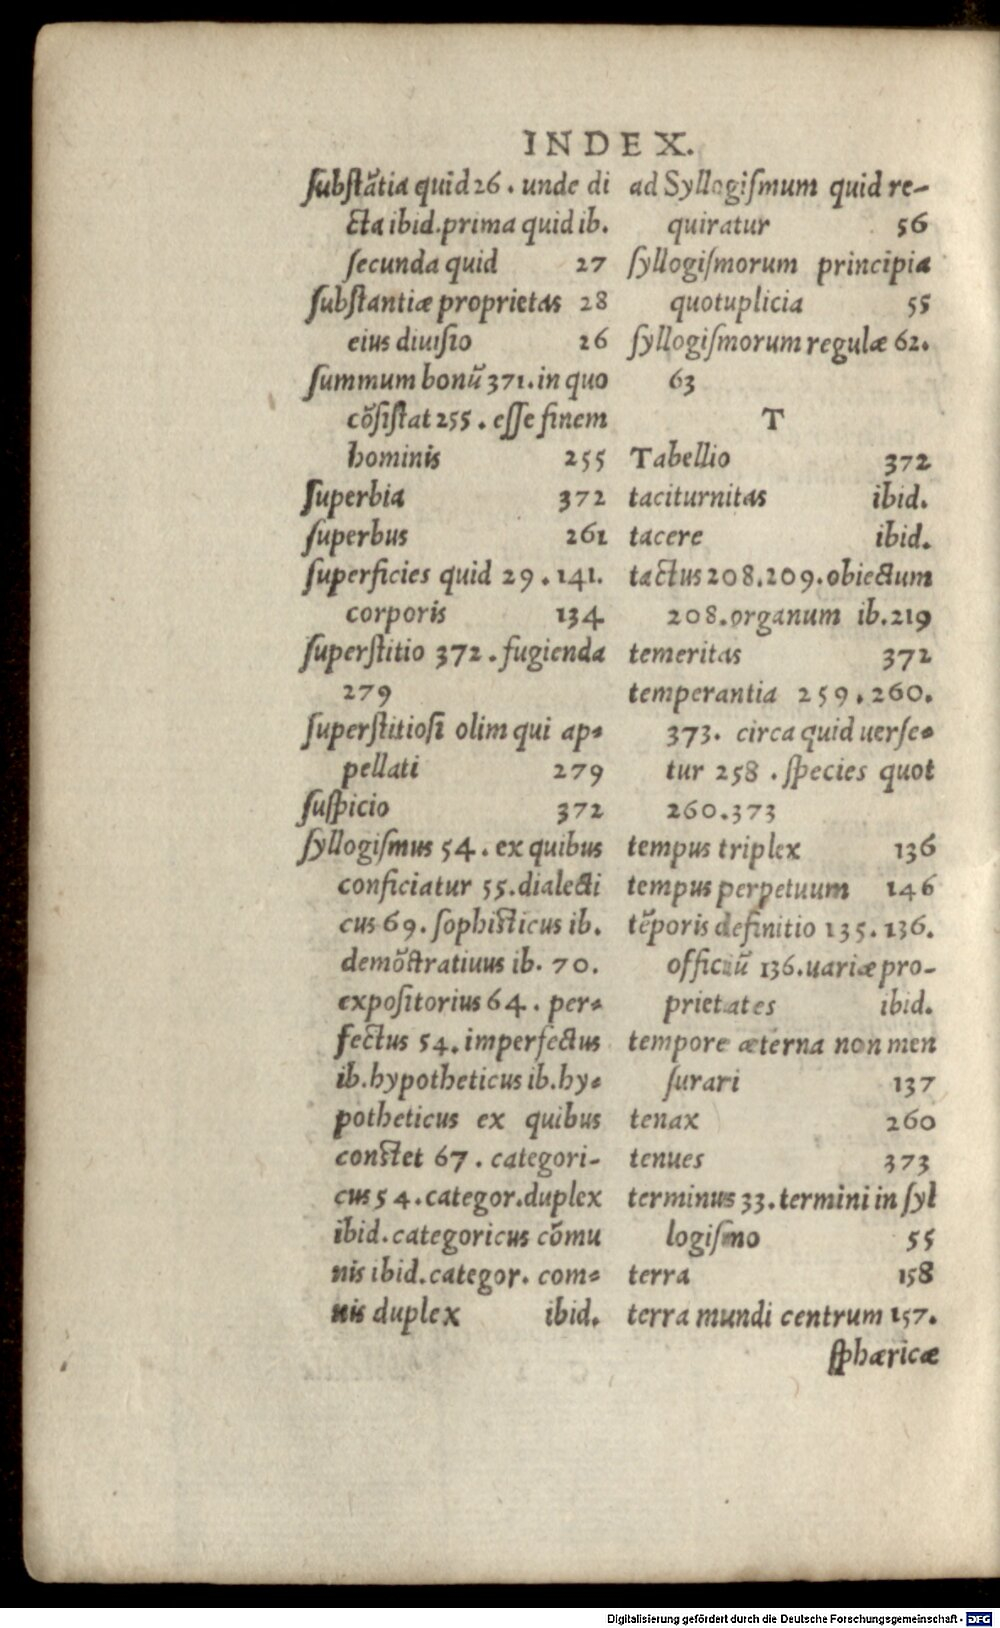 INDEX.
ſubſtātia quid 26. unde di
cta ibid. prima quid ib.
ſecunda quid 27
ſubſtantiæ proprietas 28
eius diuiſio 26
ſummum bonū 371. in quo
cōſiſtat 255. eſſe finem
hominis 255
ſuperbia 372
ſuperbus 261
ſuperficies quid 29. 141.
corporis 134
ſuperſtitio 372. fugienda
279
ſuperſtitioſi olim qui ap-
pellati 279
ſuſpicio 372
ſyllogiſmus 54. ex quibus
conficiatur 55. dialecti
cus 69. ſophiſticus ib.
demōſtratiuus ib. 70.
expoſitorius 64. per-
fectus 54. imperfectus
ib. hypotheticus ib. hy-
potheticus ex quibus
conſtet 67. categori-
cus 54. categor. duplex
ibid. categoricus cōmu
nis ibid. categor. com-
nis duplex ibid.
ad Syllogiſmum quid re-
quiratur 56
ſyllogiſmorum principia
quotuplicia 55
ſyllogiſmorum regulæ 62.
63
T
Tabellio 372
taciturnitas ibid.
tacere ibid.
tactus 208. 209. obiectum
208. organum ib. 219
temeritas 372
temperantia 259. 260.
373. circa quid uerſe-
tur 258. ſpecies quot
260. 373
tempus triplex 136
tempus perpetuum 146
tēporis definitio 135. 136.
officiū 136. uariæ pro-
prietates ibid.
tempore æterna non men
ſurari 137
tenax 260
tenues 373
terminus 33. termini in ſyl
logiſmo 55
terra 158
terra mundi centrum 157.
ſphæricæ
Digitalisierung gefördert durch die Deutsche Forschungsgemeinschaft - DFG